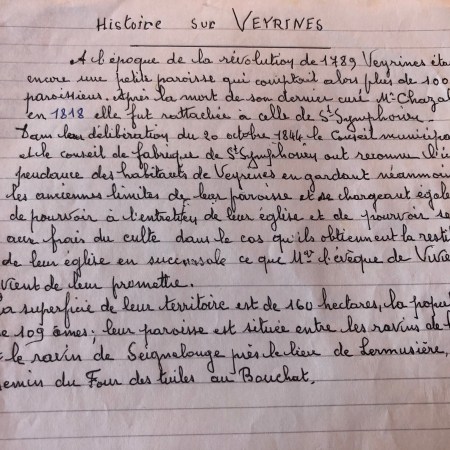 Histoire sur VEYRINES
A l'époque de la révolution de 1789 Veyrines éta
encore une petite paroisse qui comptait alors plus de 100
paroissiens. Après la mort de son dernier curé Mr Chazal
en 1818 elle fut rattachée à celle de St Symphorien.
Dans leur délibération du 20 octobre 1844 le Conseil municipa
et le conseil de fabrique de St Symphorien ont reconnu l'i
pendance des habitants de Veyrines en gardant néanmoin
les anciennes limites de leur paroisse et se chargeant égale
de pourvoir à l'entretien de leur église et de pourvoir se
aux frais du culte dans le cas qu'ils obtiennent la resti
de leur église en succursale ce que Mgr l'évêque de Vivie
vient de leur promettre.
La superficie de leur territoire est de 160 hectares, la popul
e 109 âmes; leur paroisse est située entre les ravins de
t le ravin de Seignelouge près le lieu de Lermusière,
emin du Four des tuiles au Bouchat.